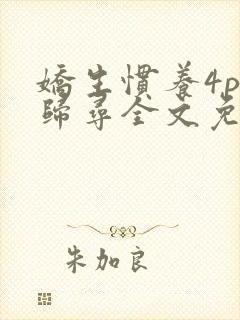 嬌生慣養4p
歸尋全文免
朱加良